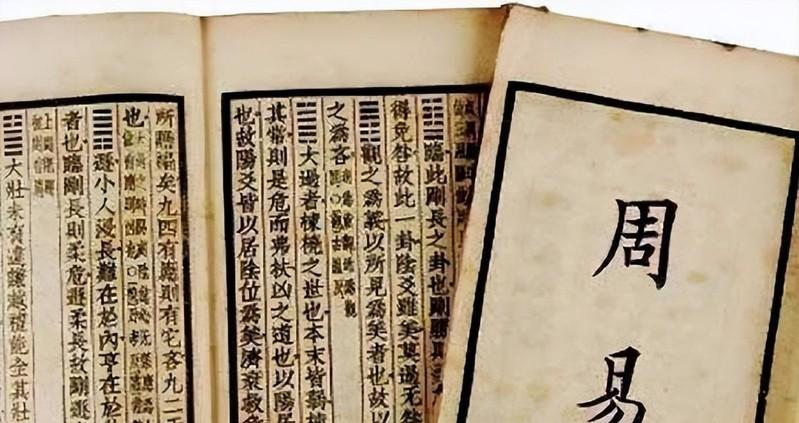 周易
䷒臨此剛長之卦也剛勝則
得免咎故此一卦陰爻雖美莫過无咎
䷓觀之爲義以所見爲美者也故以
之爲吝
䷛大過者棟橈之世也本末皆弱棟
其常則是危而弗扶凶之道也以陽居
也故陽爻皆以居陰位爲美濟衰救危
所贍褊矣九四有應則有它吝九二无
也
䷠遯小人浸長難在於內亨在於外
者也臨剛長則柔危遯柔長故剛遯
䷡大壯未有違謙越禮能全其壯